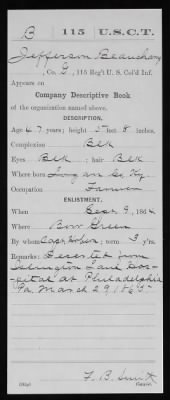 B | 115 | U.S.C.T.
Jefferson Beauchamp
, Co. G, 115 Reg't U. S. Col'd Inf.
Appears on
Company Descriptive Book
of the organization named above.
DESCRIPTION.
Age 47 years; height 5 feet 8 inches.
Complexion Blk
Eyes Blk; hair Blk
Where born Logan Co, Ky.
Occupation Farmer
ENLISTMENT.
When Sept 9, 1864
Where Bow Green
By whom Capt; term 3 y'rs.
Remarks: Deserted from
Islington Lane Hos-
pital at Philadelphia
Pa. March 29, 1865
F. B. Smith
Copyist.